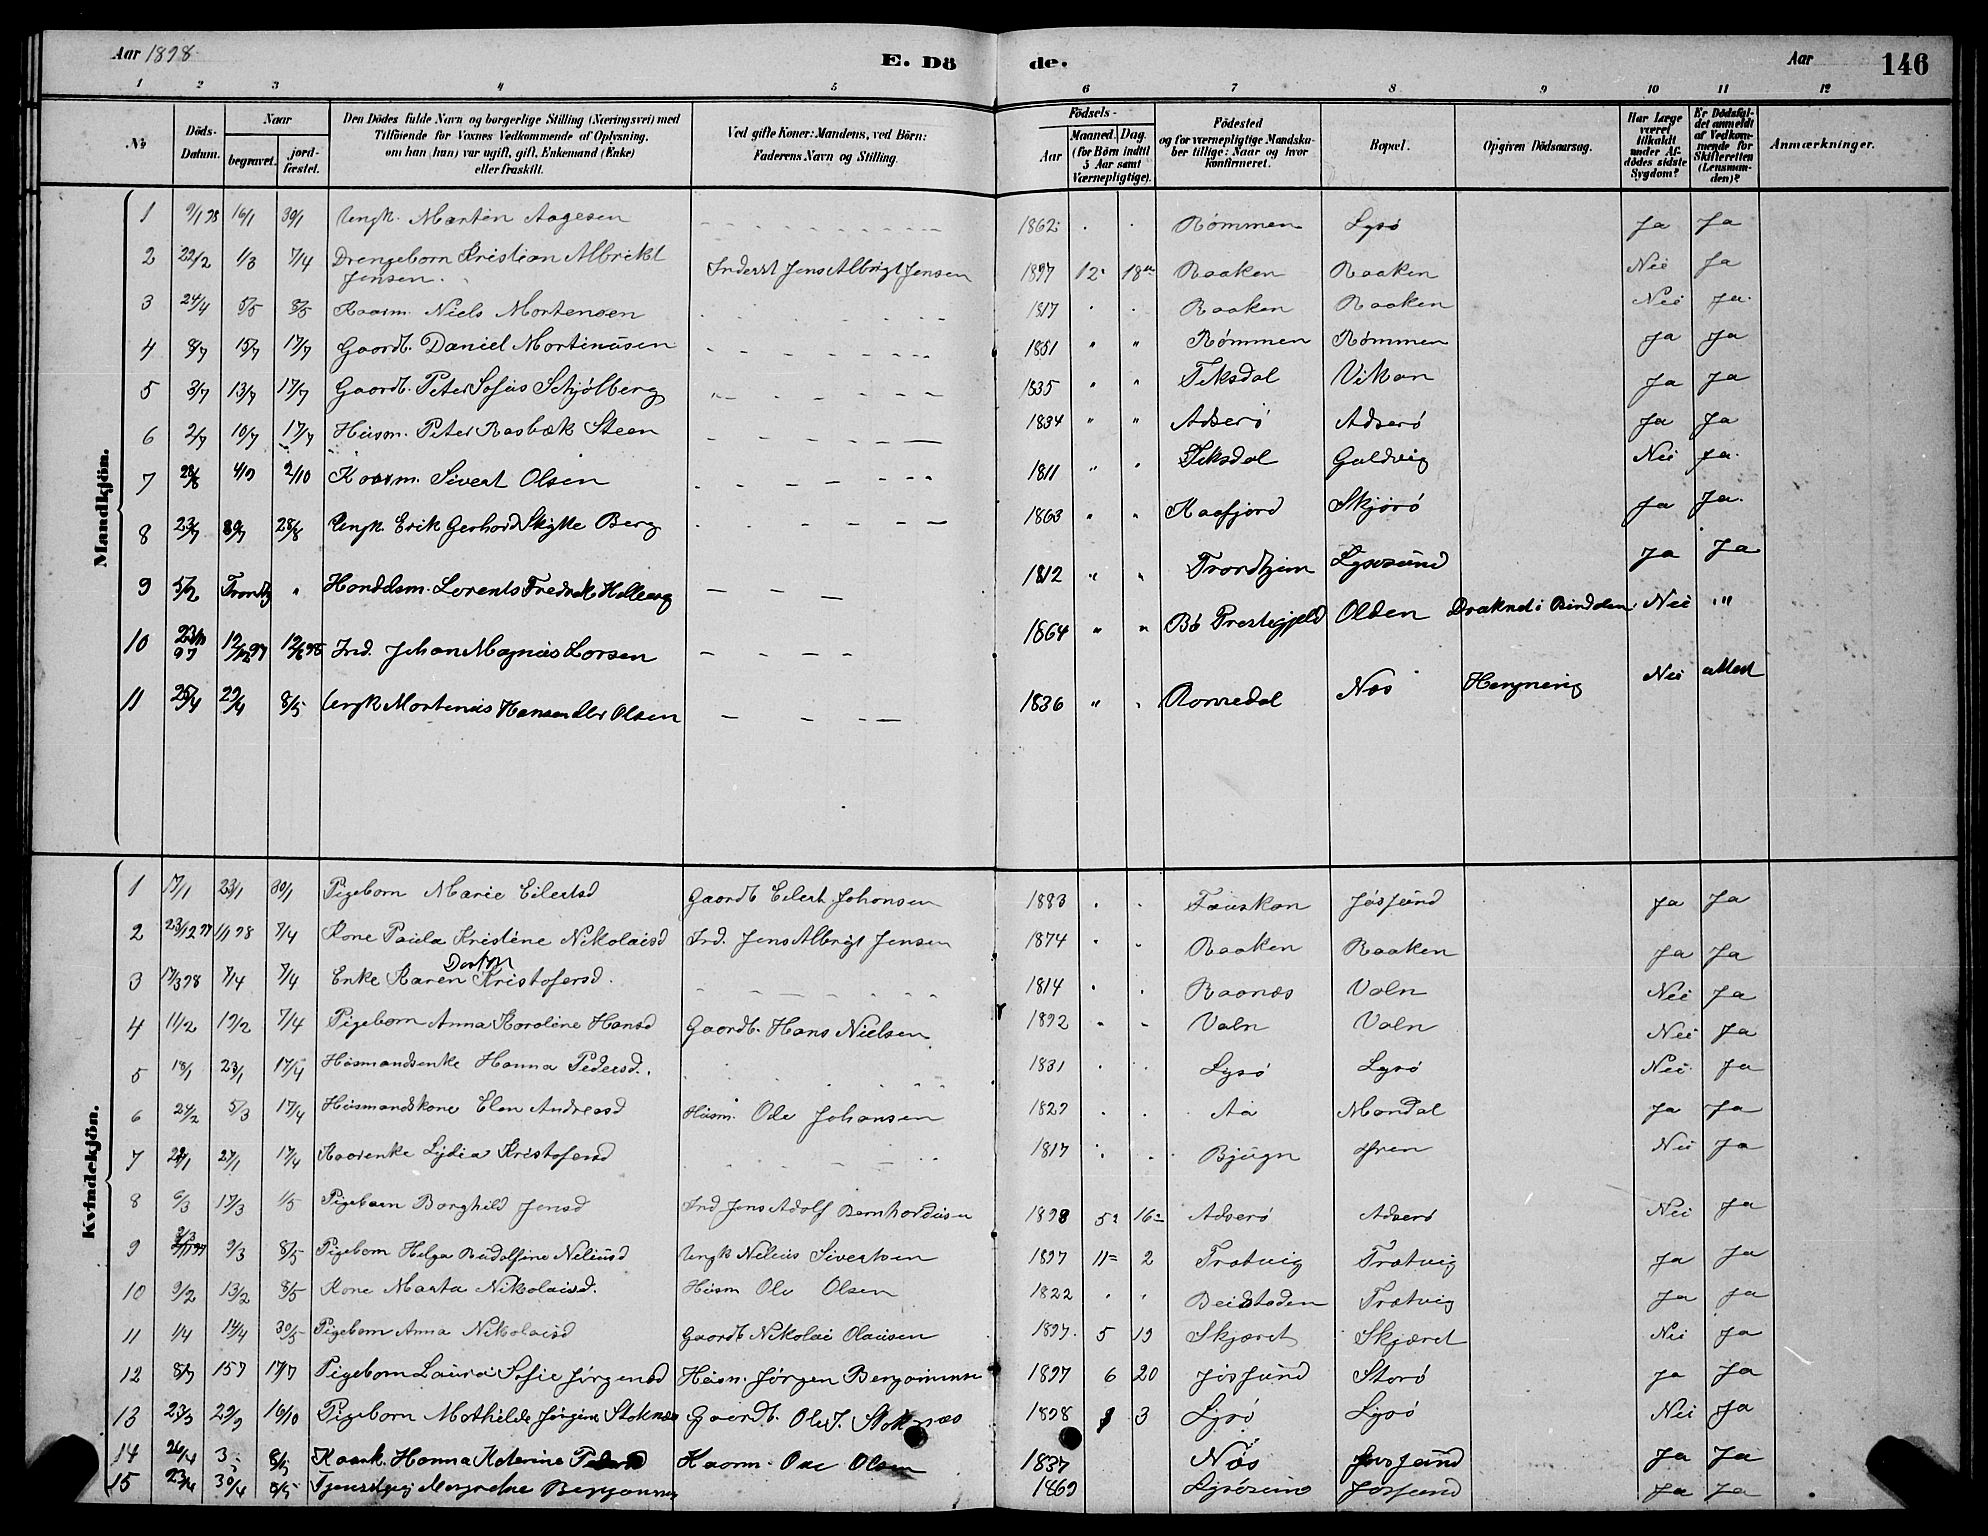 Aar 1898 E. Dö de. Aar 146
1 2 3 4 5 6 7 8 9 10 11 12
No Döds-Datum. Naar begravet. jordfæstet. Den Dödes fulde Navn og borgerlige Stilling (Næringsvei) med Tilföiende for Voxnes Vedkommende af Oplysning, om han (hun) var ugift, gift, Enkemand (Enke) eller fraskilt. Ved gifte Koner: Mandens, ved Börn: Faderens Navn og Stilling. Födsels- Aar Maaned. Dag. (for Börn indtil 5 Aar samt Værnepligtige). Födested og for værnepligtige Mandskaber tillige: Naar og hvor konfirmeret. Bopæl. Opgiven Dödsaarsag. Har Læge været tilkaldt under Afdödes sidste Sygdom? Er Dödsfaldet anmeldt af Vedkommende for Skifteretten (Lensmanden)? Anmærkninger.
Mandkjön.
1 9/1 98 16/1 30/1 Ungk. Martin Aagesen 1862 Rømmen Lysø Ja Ja
2 22/2 1/3 7/4 Drengebarn Kristian Albrikt Jensen. Inderst Jens Albrigt Jensen 1897 12 18 Raaken Raaken Nei Ja
3 24/4 5/5 8/5 Kaarm. Niels Mortensen 1817 Raaken Raaken Nei Ja.
4 8/7 15/7 17/7 Gaardb. Daniel Martinusen 1851 " " Rømmen Rømmen Ja Ja
5 3/7 13/7 17/7 Gaardb. Peter Sofus Schjølberg 1835 " " Teksdal Vikan Ja Ja
6 2/7 10/7 17/7 Husm. Peter Rosbæk Steen 1834 " " Adserø Adserø Ja Ja
7 28/8 4/9 2/10 Kaarm. Sivert Olsen 1811 " " Teksdal Guldvig Nei Ja.
8 23/7 28/8 Ungk. Erik Gerhard Skytte Berg 1863 " " Kaafjord Skjørø Ja Ja.
9 5/2 Trondhj " Handelsm. Lorents Fredrik Holberg 1812 " " Trondhjem Lysøsund Ja Ja
10 97 12/12 97 12/6 98 Ind. Johan Magnus Larsen 1864 " " Bø Prestegjeld Olden Druknet i Nei "
11 25/4 29/4 8/5 Ungk Martenus Hansen eller Olsen 1836 " " Romsdal Næs Hængning Nei attest
Kvindekjön.
1 17/1 23/1 30/1 Pigebarn Marie Eilertsd Gaardb Eilert Johansen 1883 Fauskan Jøssund Ja Ja
2 23/12 97 1/1 98 7/4 Kone Paula Kristine Nikolaisd Ind. Jens Albrigt Jensen 1874 Raaken Raaken Ja Ja
3 17/3 98 7/4 7/4 Enke Karen Dorthea Kristofersd. 1814 Raanæs Valn Nei Ja
4 11/2 19/2 7/4 Pigebarn Anna Karoline Hansd Gaardb. Hans Nielsen 1892 Valn Valn Nei Ja
5 18/1 23/1 17/4 Husmandsenke Hanna Pedersd. 1831 Lysø Lysø Nei Ja
6 24/2 5/3 17/4 Husmandskone Elen Andreasd Husm. Ole Johansen 1829 Aa Mandal Ja Ja
7 27/1 17/4 Kaarenke Lydia Kristofersd 1817 Bjugn Nei Ja
8 6/3 17/3 1/5 Pigebarn Borghild Jensd Ind Jens Adolf Bernhardusen 1898 5 16 Adserø Adserø Nei Ja
9 2/3 9/3 8/5 Pigebarn Helga Rudolfine Neliusd Ungk Nelius Sivertsen 1897 11 2 Tratvig Tratvig Ja Ja
10 9/2 13/2 8/5 Kone Marta Nikolaisd. Husm Ole Olsen 1822 Beidstaden Tratvig Ja Ja
11 1/4 14/4 30/5 Pigebarn Anna Nikolaisd Gaardb Nikolai Olausen 1897 5 19 Skjæret Skjæret Nei Ja
12 8/7 15/7 17/7 Pigebarn Laura Sofie Jørgensd Husm. Jørgen Benjaminsen 1897 6 20 Jøssund Storø Ja Ja
13 23/9 29/9 16/10 Pigebarn Mathilde Jørgine Stoknæs Gaardb. Ole J. Stoknæs 1898 3 Lysø Lysø Nei Ja
14 26/4 3 8/5 Kaark. Hanna Katerine Kaarm. Ole Olsen 1837 Næs Jøssund Ja Ja
15 23/4 30/4 8/5 Tjenestepig 1869 Lysøsund Jøssund Ja Ja